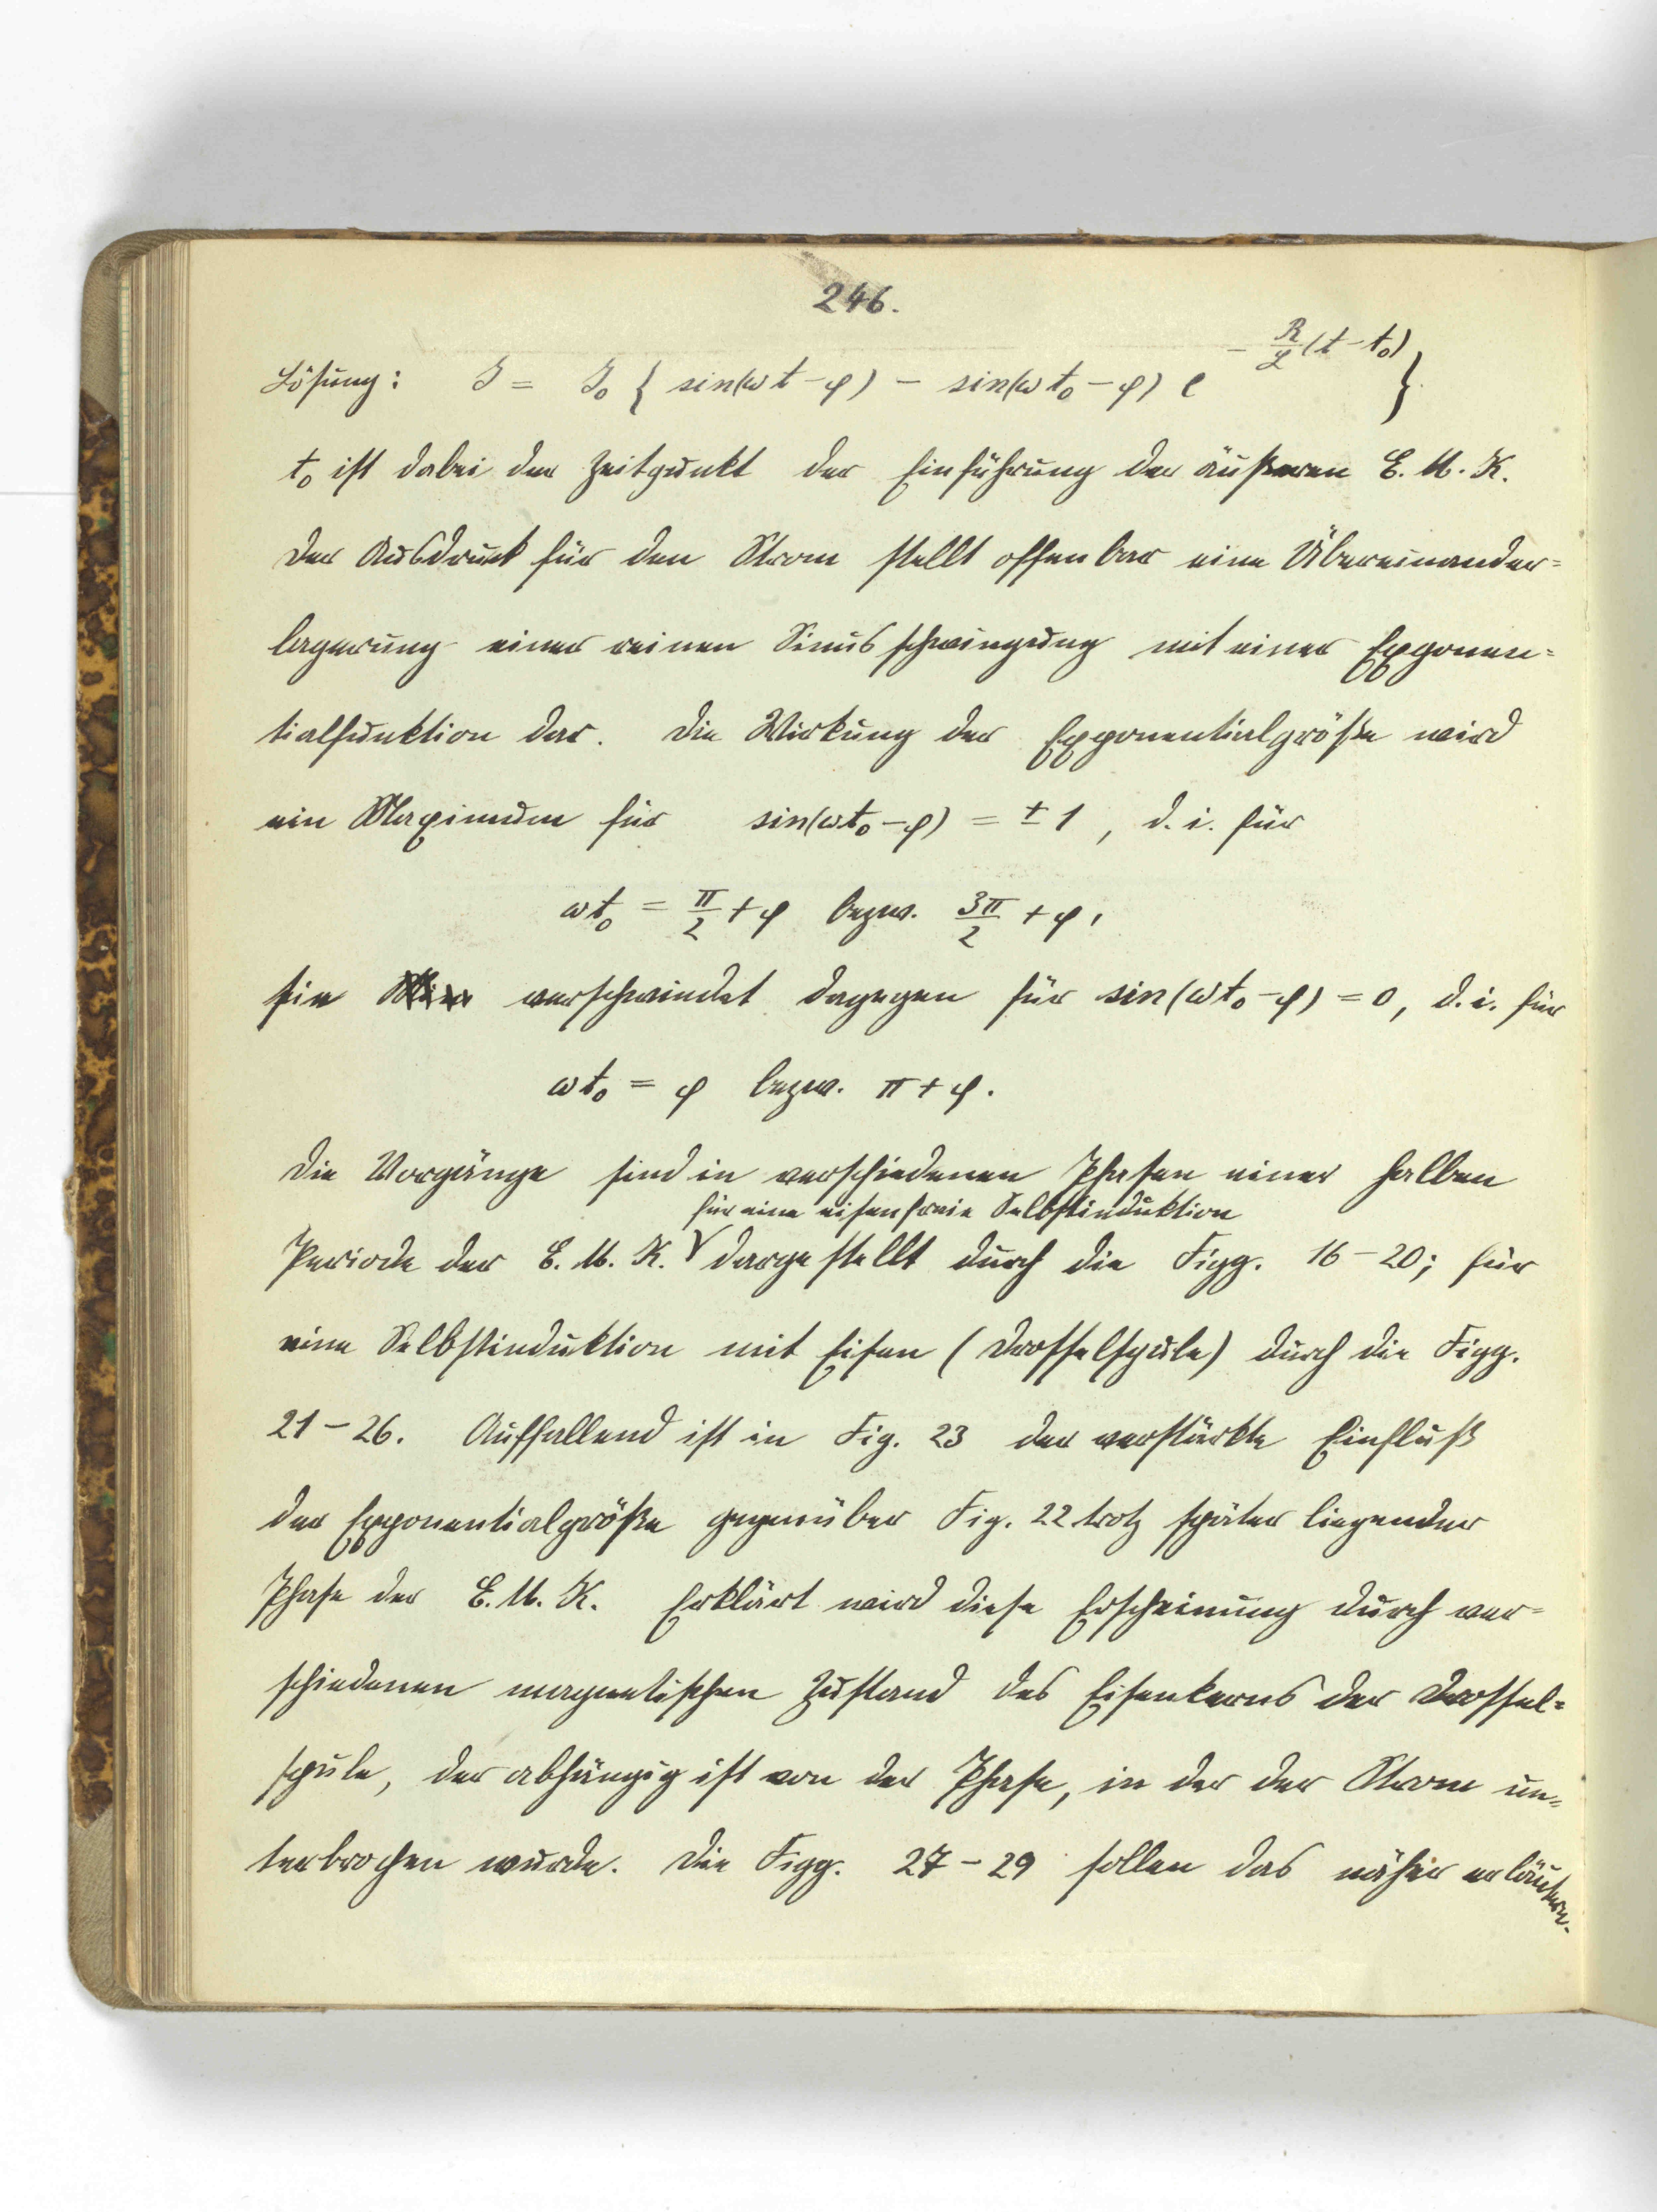 246.
Lösung: J = J₀ { sin(ωt-φ) - sin(ωt₀-φ) e^{-R/L (t-t₀)} }
t₀ ist dabei der Zeitpunkt der Einführung der äußeren E. M. K.
Der Ausdruck für den Strom stellt offenbar eine Übereinander=
lagerung einer reinen Sinusschwingung mit einer Exponen=
tialfunktion dar. Die Wirkung der Exponentialgröße wird
ein Maximum für sin(ωt₀-φ) = ± 1, d. i. für
ωt₀ = π/2 + φ bezw. 3π/2 + φ,
sie verschwindet dagegen für sin(ωt₀-φ) = 0, d. i. für
ωt₀ = φ bezw. π + φ.
Die Vorgänge sind in verschiedenen Phasen einer halben
für eine eisenfreie Selbstinduktion
Periode der E. M. K. dargestellt durch die Figg. 16-20; für
eine Selbstinduktion mit Eisen (Drosselspule) durch die Figg.
21-26. Auffallend ist in Fig. 23 der verstärkte Einfluß
der Exponentialgröße gegenüber Fig. 22 trotz später liegender
Phase der E. M. K. Erklärt wird diese Erscheinung durch ver=
schiedenen magnetischen Zustand des Eisenkerns der Drossel=
spule, der abhängig ist von der Phase, in der der Strom un=
terbrochen wurde. Die Figg. 27-29 sollen das näher erläutern.